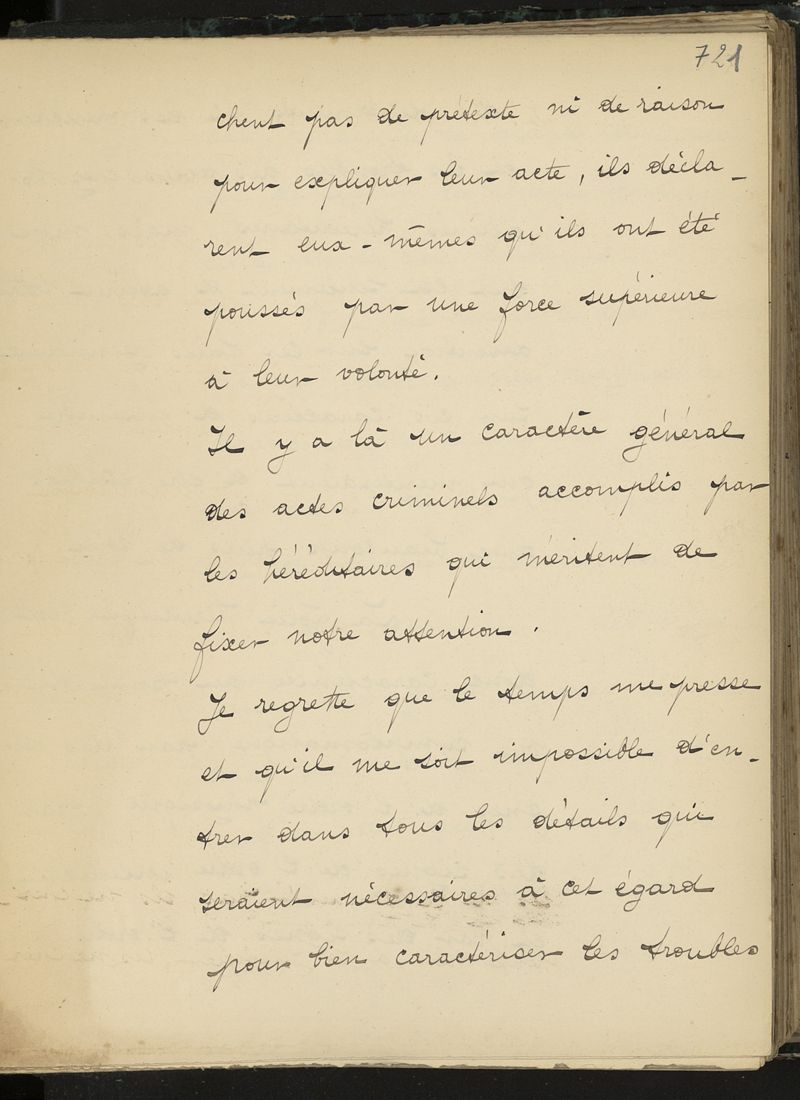 721
chent pas de prétexte ni de raison
pour expliquer leur acte, ils décla-
rent eux-mêmes qu'ils ont été
poussés par une force supérieure
à leur volonté.
Il y a là un caractère général
des actes criminels accomplis par
les héréditaires qui méritent de
fixer notre attention.
Je regrette que le temps me presse
et qu'il me soit impossible d'en-
trer dans tous les détails qui
seraient nécessaires à cet égard
pour bien caractériser les troubles